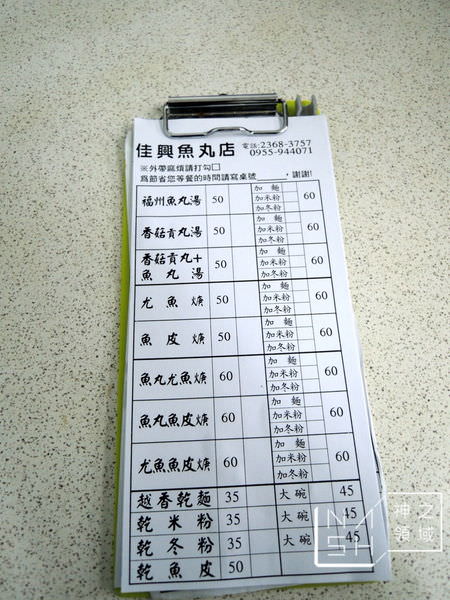 佳興魚丸店 電話:2368-3757
0955-944071
※外帶麻煩請打勾□
為節省您等餐的時間請寫桌號 ,謝謝!
福州魚丸湯 50 加麵 加米粉 加冬粉 60
香菇貢丸湯 50 加麵 加米粉 加冬粉 60
香菇貢丸+魚丸湯 50 加麵 加米粉 加冬粉 60
尤魚焿 50 加麵 加米粉 加冬粉 60
魚皮焿 50 加麵 加米粉 加冬粉 60
魚丸尤魚焿 60 加麵 加米粉 加冬粉 60
魚丸魚皮焿 60 加麵 加米粉 加冬粉 60
尤魚魚皮焿 60 加麵 加米粉 加冬粉 60
越香乾麵 35 大碗 45
乾米粉 35 大碗 45
乾冬粉 35 大碗 45
乾魚皮 50
神之領域